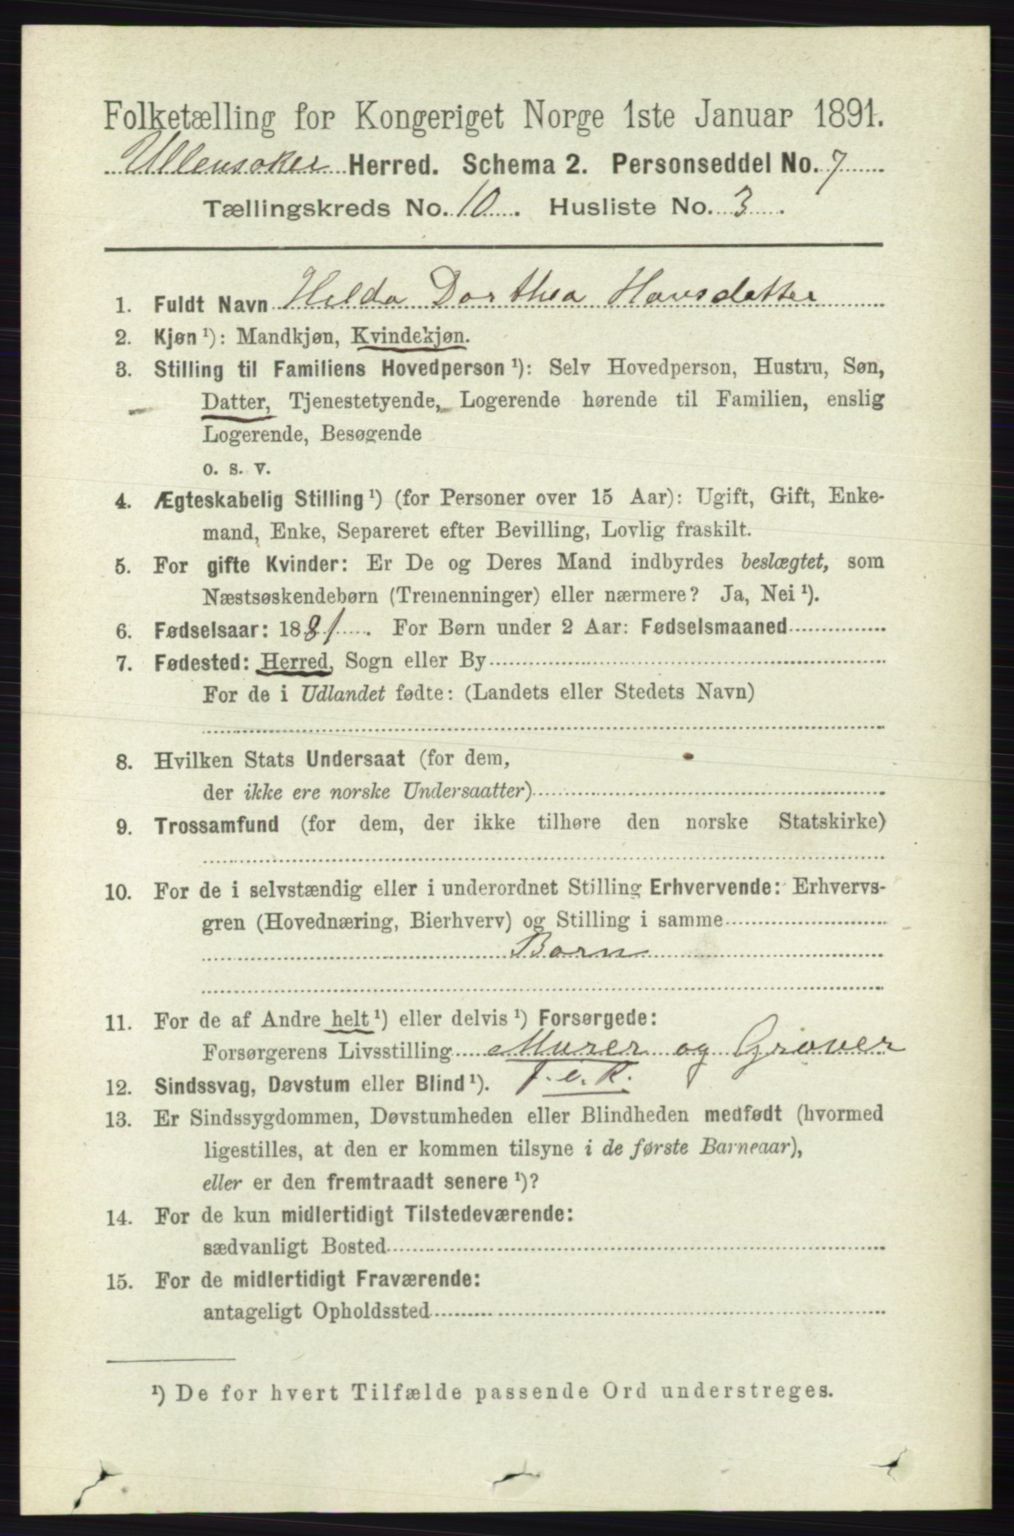 Folketælling for Kongeriget Norge 1ste Januar 1891.
Ullensaker Herred. Schema 2. Personseddel No. 7
Tællingskreds No. 10. Husliste No. 3.
1. Fuldt Navn Hilda Dorthea Hansdatter
2. Kjøn ¹): Mandkjøn, Kvindekjøn.
3. Stilling til Familiens Hovedperson ¹): Selv Hovedperson, Hustru, Søn,
Datter, Tjenestetyende, Logerende hørende til Familien, enslig
Logerende, Besøgende
o. s. v.
4. Ægteskabelig Stilling ¹) (for Personer over 15 Aar): Ugift, Gift, Enke-
mand, Enke, Separeret efter Bevilling, Lovlig fraskilt.
5. For gifte Kvinder: Er De og Deres Mand indbyrdes beslægtet, som
Næstsøskendebørn (Tremenninger) eller nærmere? Ja, Nei ¹).
6. Fødselsaar: 1881. For Børn under 2 Aar: Fødselsmaaned
7. Fødested: Herred, Sogn eller By
For de i Udlandet fødte: (Landets eller Stedets Navn)
8. Hvilken Stats Undersaat (for dem,
der ikke ere norske Undersaatter)
9. Trossamfund (for dem, der ikke tilhøre den norske Statskirke)
10. For de i selvstændig eller i underordnet Stilling Erhvervende: Erhvervs-
gren (Hovednæring, Bierhverv) og Stilling i samme
Barn
11. For de af Andre helt ¹) eller delvis ¹) Forsørgede:
Forsørgerens Livsstilling Murer og Graver
12. Sindssvag, Døvstum eller Blind ¹).
13. Er Sindssygdommen, Døvstumheden eller Blindheden medfødt (hvormed
ligestilles, at den er kommen tilsyne i de første Barneaar),
eller er den fremtraadt senere ¹)?
14. For de kun midlertidigt Tilstedeværende:
sædvanligt Bosted
15. For de midlertidigt Fraværende:
antageligt Opholdssted
¹) De for hvert Tilfælde passende Ord understreges.